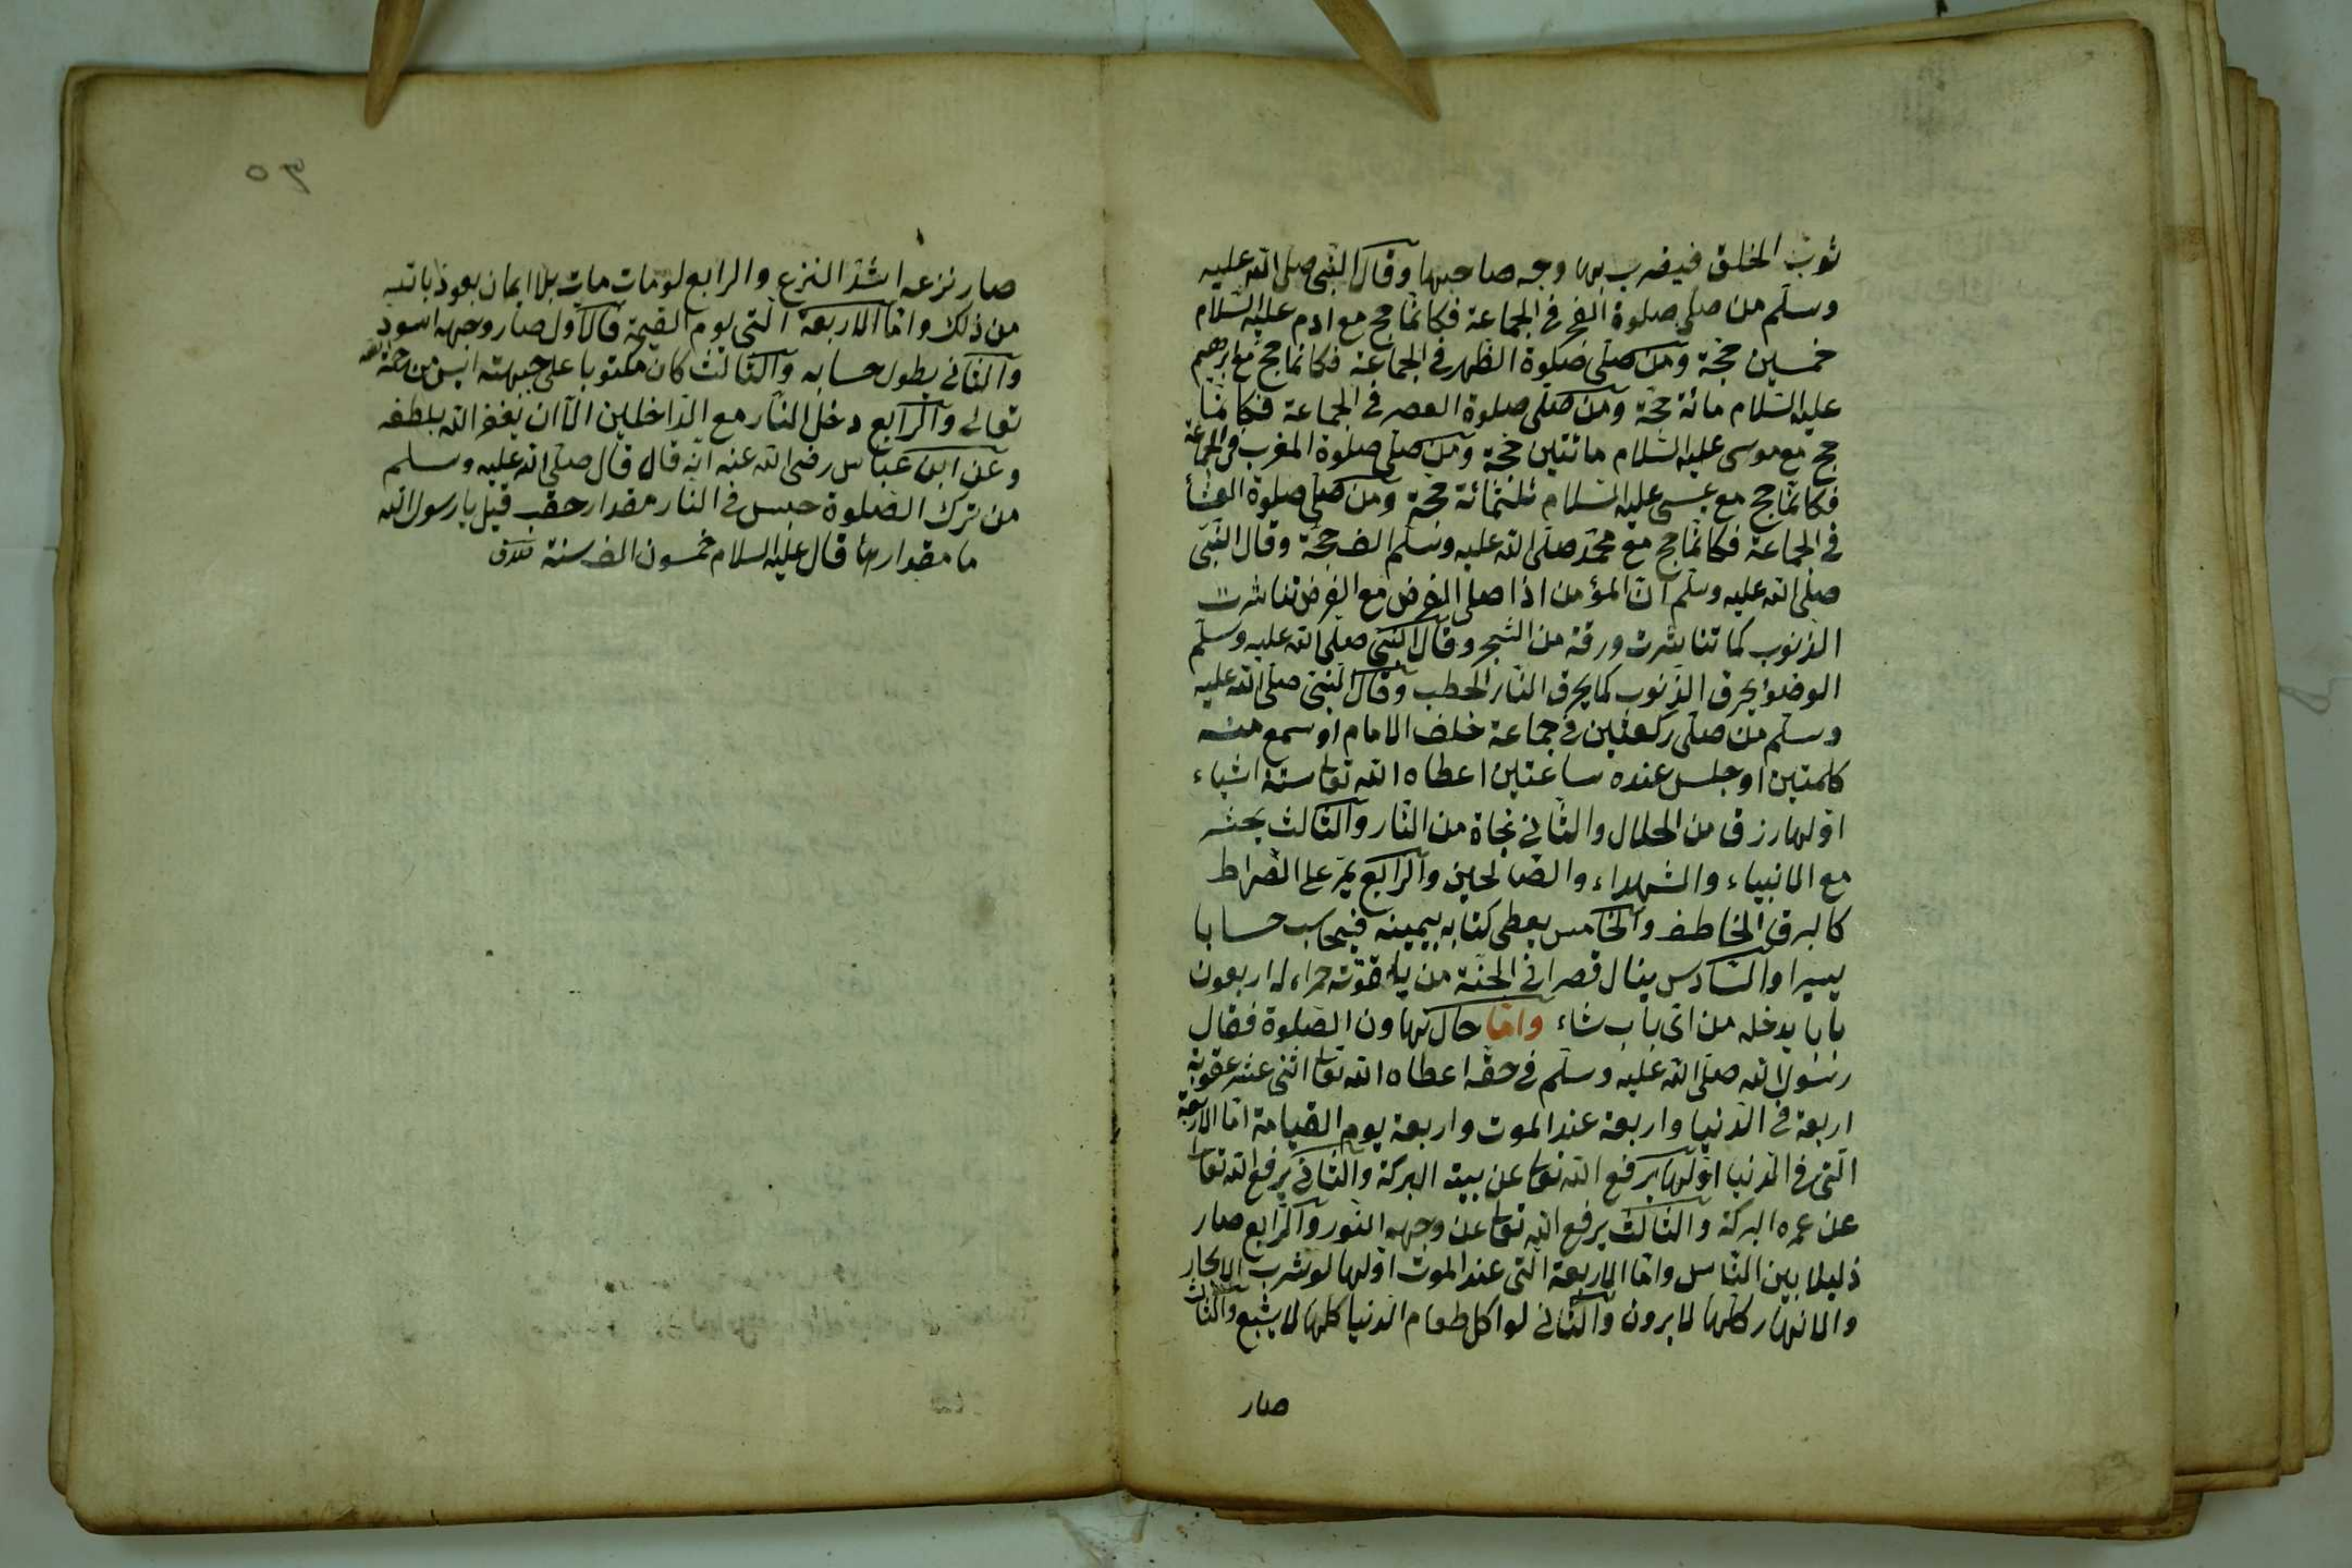 ثوب الخلق فيضرب بها وجه صاحبها وقال النبى صلى الله عليه
وسلم من صلى صلوة الفجر فى الجماعة فكانما حج مع ادم عليه السلام
خمسين حجة ومن صلى صلوة الظهر فى الجماعة فكانما حج مع ابرهيم
عليه السلام مائة حجة ومن صلى صلوة العصر فى الجماعة فكانما
حج مع موسى عليه السلام مائتين حجة ومن صلى صلوة المغرب فى الجماعة
فكانما حج مع عيسى عليه السلام ثلثمائة حجة ومن صلى صلوة العشأ
فى الجماعة فكانما حج مع محمد صلى الله عليه وسلم الف حجة وقال النبى
صلى الله عليه وسلم ان المؤمن اذا صلى الفرض مع الفرض تناشرت
الذنوب كما تناشرت ورقة من الشجر وقال النبى صلى الله عليه وسلم
الوضوء يحرق الذنوب كما يحرق النار الحطب وقال النبى صلى الله عليه
وسلم من صلى ركعتين فى جماعة خلف الامام او سمع منه
كلمتين او جلس عنده ساعتين اعطاه الله تعا ستة اشياء
اولها رزق من الحلال والثانى نجاة من النار والثالث يحشر
مع الانبياء والشهداء والصالحين والرابع يمر على الصراط
كالبرق الخاطف والخامس يعطى كتابه بيمينه فيحاسب حسابا
يسيرا والسادس ينال قصرا فى الجنة من ياقوتة حمراء له اربعون
بابا يدخله من اى باب شاء واما حال تهاون الصلوة فقال
رسول الله صلى الله عليه وسلم فى حقه اعطاه الله تعا اثنى عشر عقوبة
اربعة فى الدنيا واربعة عند الموت واربعة يوم القيامة اما الاربعة
التى فى الدنيا اولها يرفع الله تعا عن بيته البركة والثانى يرفع الله تعا
عن عمره البركة والثالث يرفع الله تعا عن وجهه النور والرابع صار
ذليلا بين الناس واما الاربعة التى عند الموت اولها لو شرب البحار
والانهار كلها لا يرون والثانى لو اكل طعام الدنيا كلها لا يشبع والثالث
صار
٩٥
صار نزعه اشد النزع والرابع لو مات مات بلا ايمان نعوذ بالله
من ذلك واما الاربعة التى يوم القيمة فالاول صار وجهه اسود
والثانى يطول حسابه والثالث كان مكتوبا على جبهته ايس من رحمة الله
تعالى والرابع دخل النار مع الداخلين الا ان يغفر الله بلطفه
وعن ابن عباس رضى الله عنه انه قال قال صلى الله عليه وسلم
من ترك الصلوة حبس فى النار مقدار حقب قيل يا رسول الله
ما مقدارها قال عليه السلام خمسون الف سنة